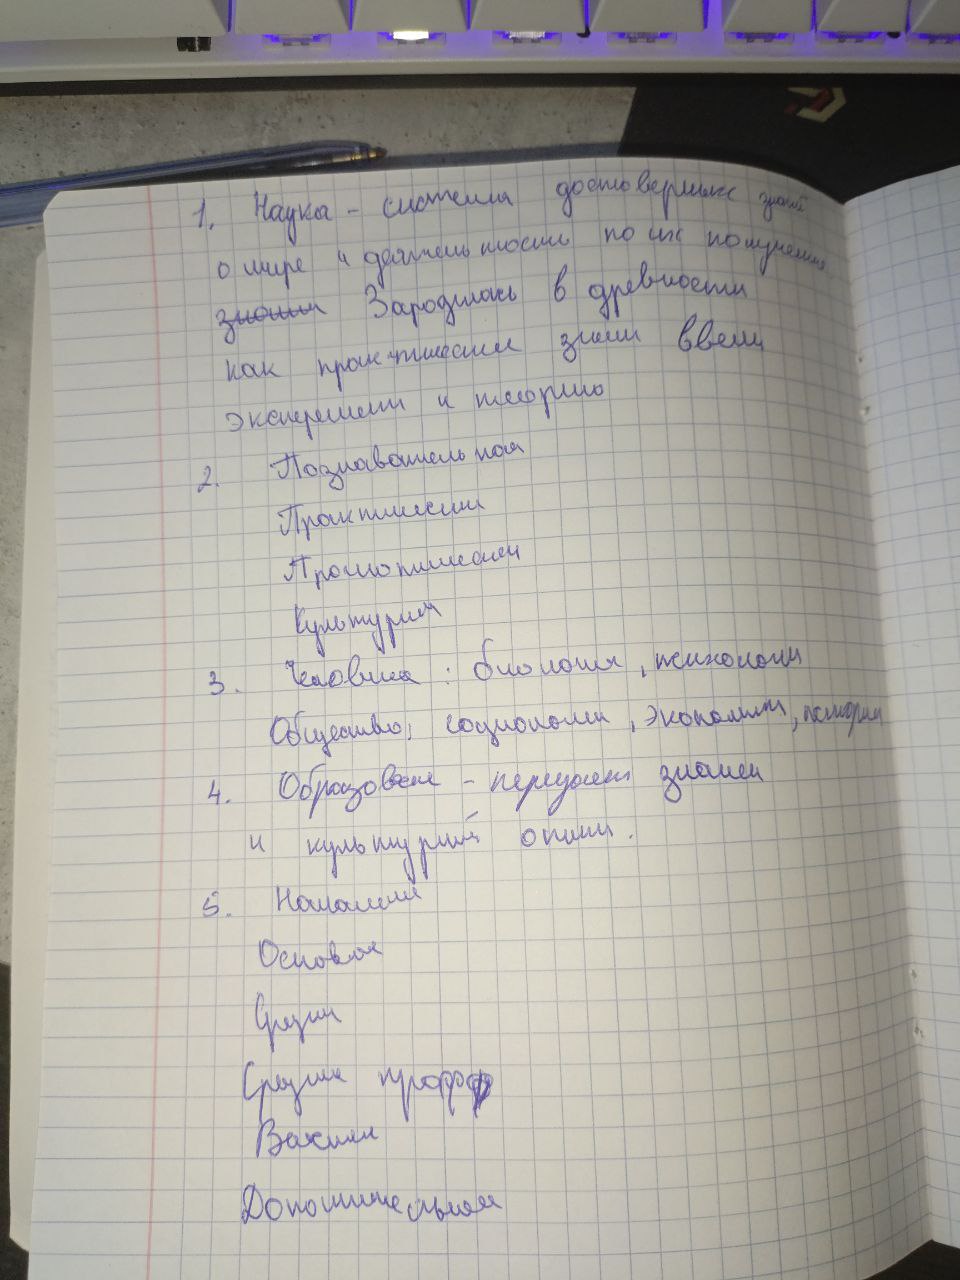 1. Наука - система достоверных знаний
о мире и деятельности по их получению
знания Зародилась в древности
как практические знани ввели
эксперемент и теорию
2. Познавательная
Практически
Прогностически
Културий
3. Человека : биология, психологи
Общество: социологи, экономики, истории
4. Образование - передает знаний
и културий опыт.
5. Начальни
Основое
Средни
Средние профф
Высшии
Дополнительная